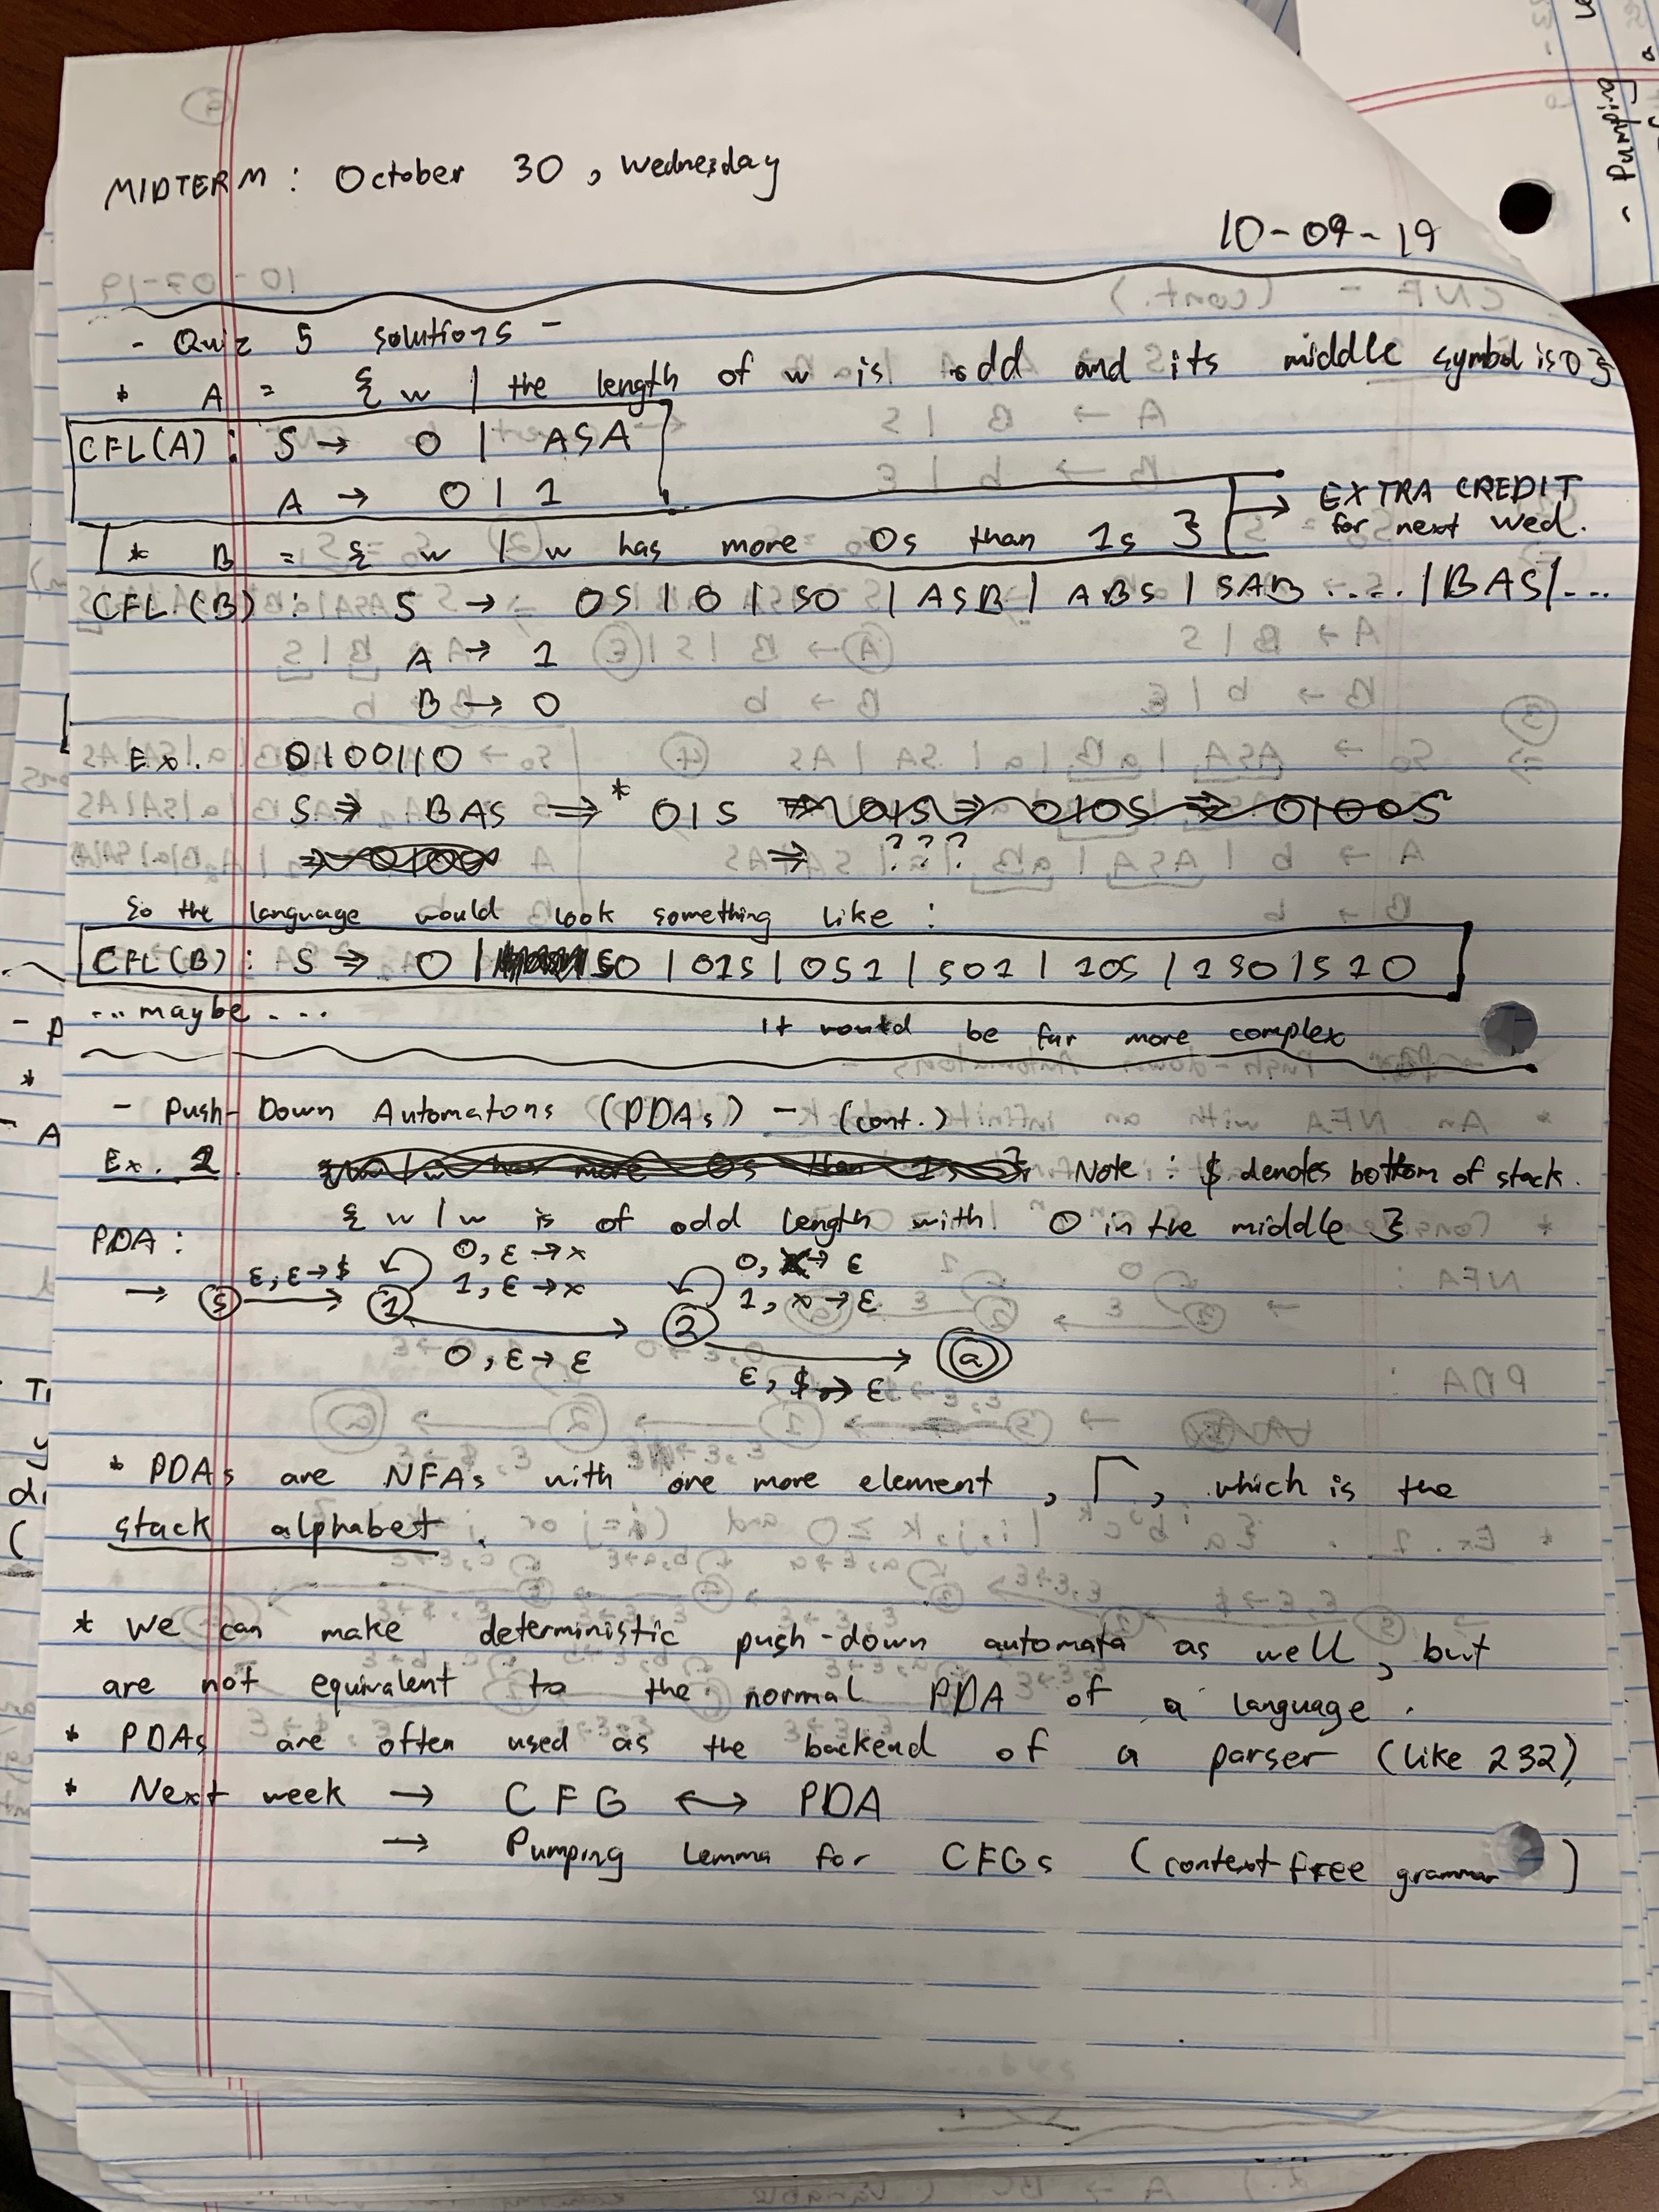 MIDTERM : October 30, Wednesday
10-09-19
- Quiz 5 solutions -
* A = { w | the length of w is odd and its middle symbol is 0 }
CFL(A) : S → 0 | ASA
A → 0 | 1
* B = { w | w has more 0s than 1s }
EXTRA CREDIT
for next Wed.
CFL (B) : S → 0S | 0 | S0 | ASB | ABS | SAB .... | BAS | ...
A → 1
B → 0
Ex. 0100110
S ⇒ BAS ⇒* 01S ⇒ 01S ⇒ 010S ⇒ 0100S
⇒ 0100 ⇒ ???
So the language would look something like :
CFL(B) : S ⇒ 0 | S0 | 01S | 0S1 | S01 | 10S | 1S0 | S10
... maybe ...
It would be far more complex
- Push-Down Automatons (PDAs) - (cont.)
Ex. 2 {w | w has more 0s than 1s} Note : $ denotes bottom of stack.
{ w | w is of odd length with 0 in the middle }
PDA :
0, ε → x
1, ε → x
0, x → ε
1, x → ε
→ S ε, ε → $ 1 2
0, ε → ε
a
ε, $ → ε
* PDAs are NFAs with one more element, Γ, which is the
stack alphabet.
* We can make deterministic push-down automata as well, but
are not equivalent to the normal PDA of a language.
* PDAs are often used as the backend of a parser (like 232)
* Next week → CFG ↔ PDA
→ Pumping Lemma for CFGs (context free grammar )
- Pumping